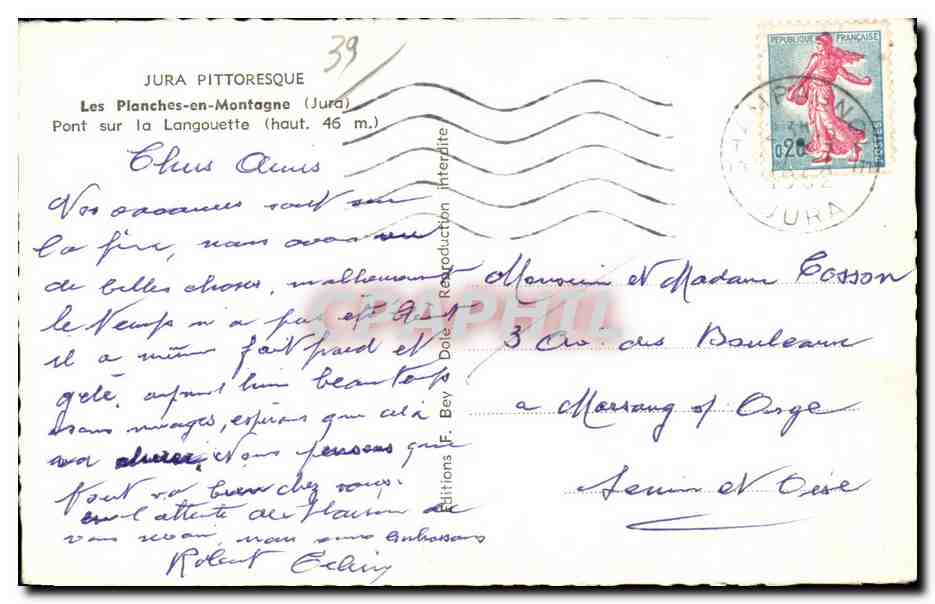 39
JURA PITTORESQUE
Les Planches-en-Montagne (Jura)
Pont sur la Langouette (haut. 46 m.)
Chers Amis
Nos vacances sont sur
la fin, nous avons vu
de belles choses, malheureusement
le temps n'a pas été
il a même fait froid et
gelé, aujourd'hui beau temps
sans nuages, espérons que cela
va durer, et nous pensons que
tout va bien chez vous.
en l'attente du plaisir de
vous revoir, nous vous embrassons
Robert
Editions F. Bey Dole Reproduction interdite
CPAPHIL
REPUBLIQUE FRANÇAISE
0,20
POSTES
CHAMPAGNOLE
1962
JURA
Monsieur et Madame Cosson
3 Av. des Bouleaux
a Morsang s/ Orge
Seine et Oise